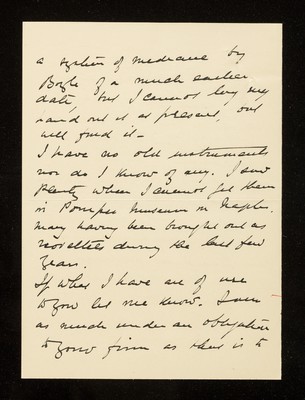 a system of medicine by
Boyle of a much earlier
date but I cannot lay my
hand on it at present, but
will find it —
I have no old instruments
nor do I know of any. I saw
plenty where I cannot get them
in Pompei Museum in Naples.
many having been brought out as
novelties during the last few
years.
If what I have are of use
to you let me know. I am
as much under an obligation
to your firm as there is to